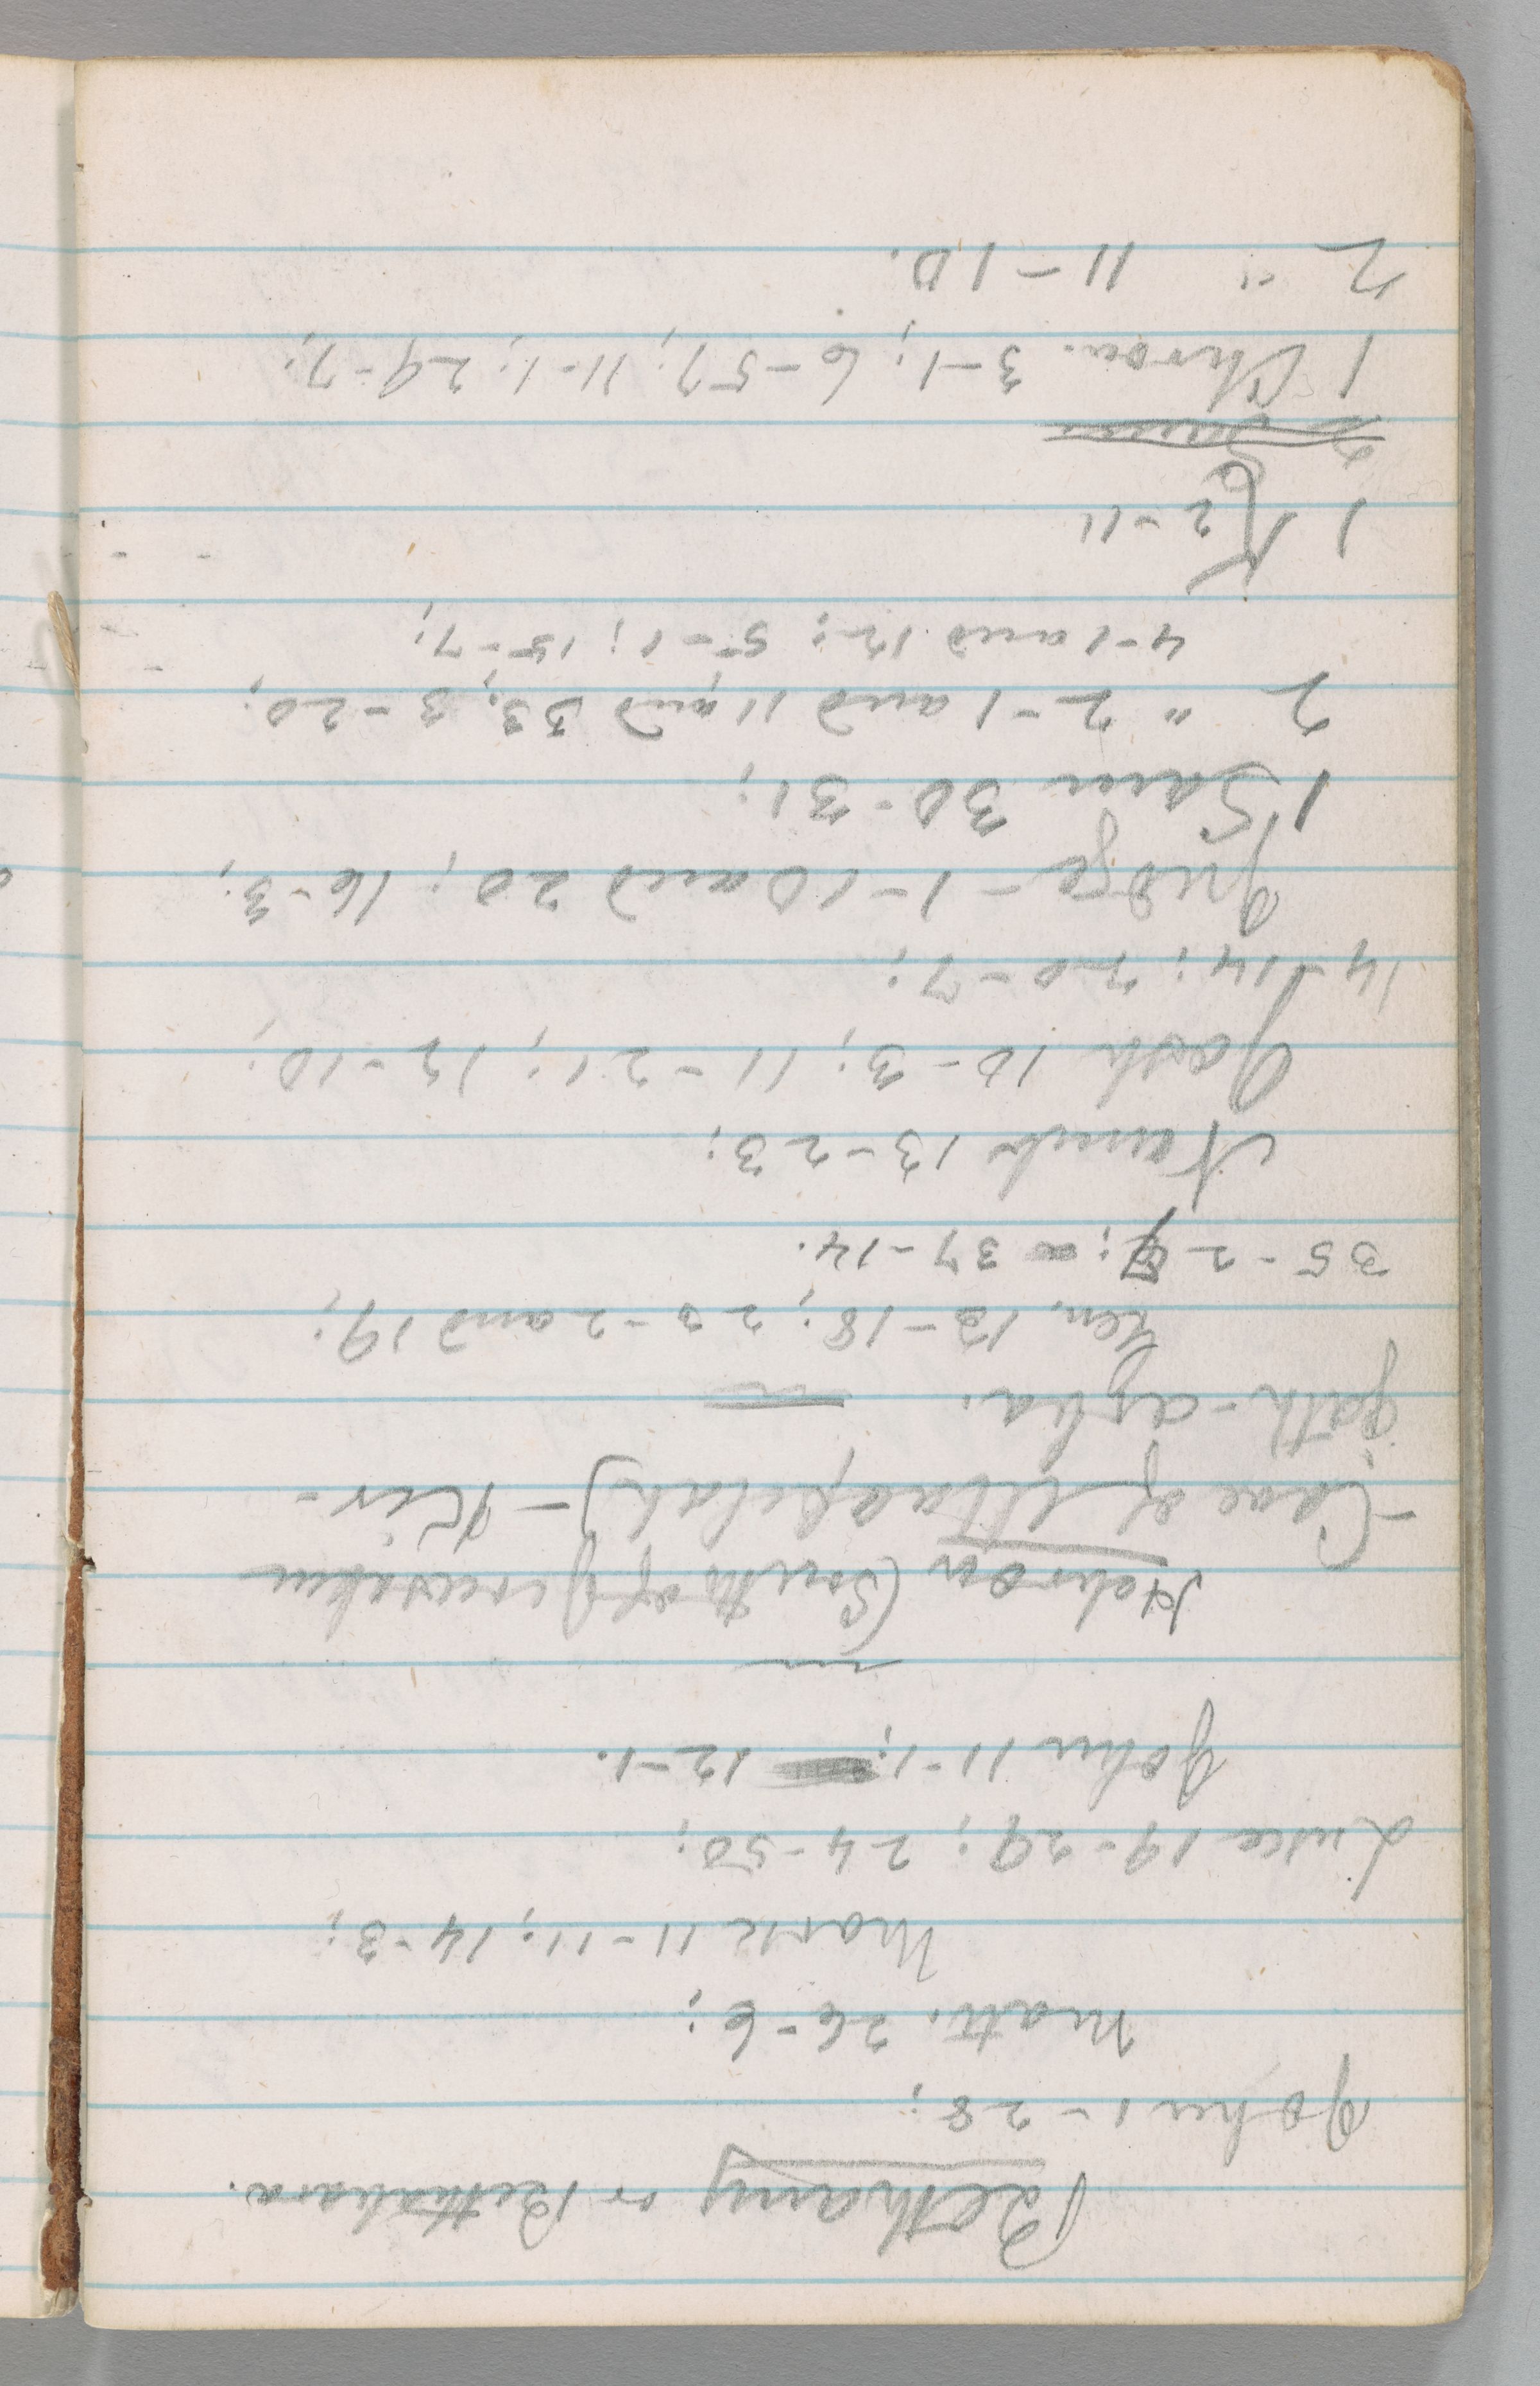 Bethany or Bethabara.
John 1-28;
Matt. 26-6;
Mark 11-11; 14-3;
Luke 19-29; 24-50;
John 11-1; 12-1.
Hebron (South of Jerusalem
- Cave of Machpelah) - Kir-
jath-arba.
Gen. 13-18; 23-2 and 19;
35-27; 37-14.
Numb 13-23;
Josh 10-3; 11-21; 12-10;
14-14; 20-7;
Judge - 1-10 and 20; 16-3;
1 Sam 30-31;
2 " 2-1 and 11 and 33; 3-20;
4-1 and 12; 5-1; 15-7;
1 K 2-11
2 Sam
1 Chron. 3-1; 6-57; 11-1; 29-7;
2 " 11-10.